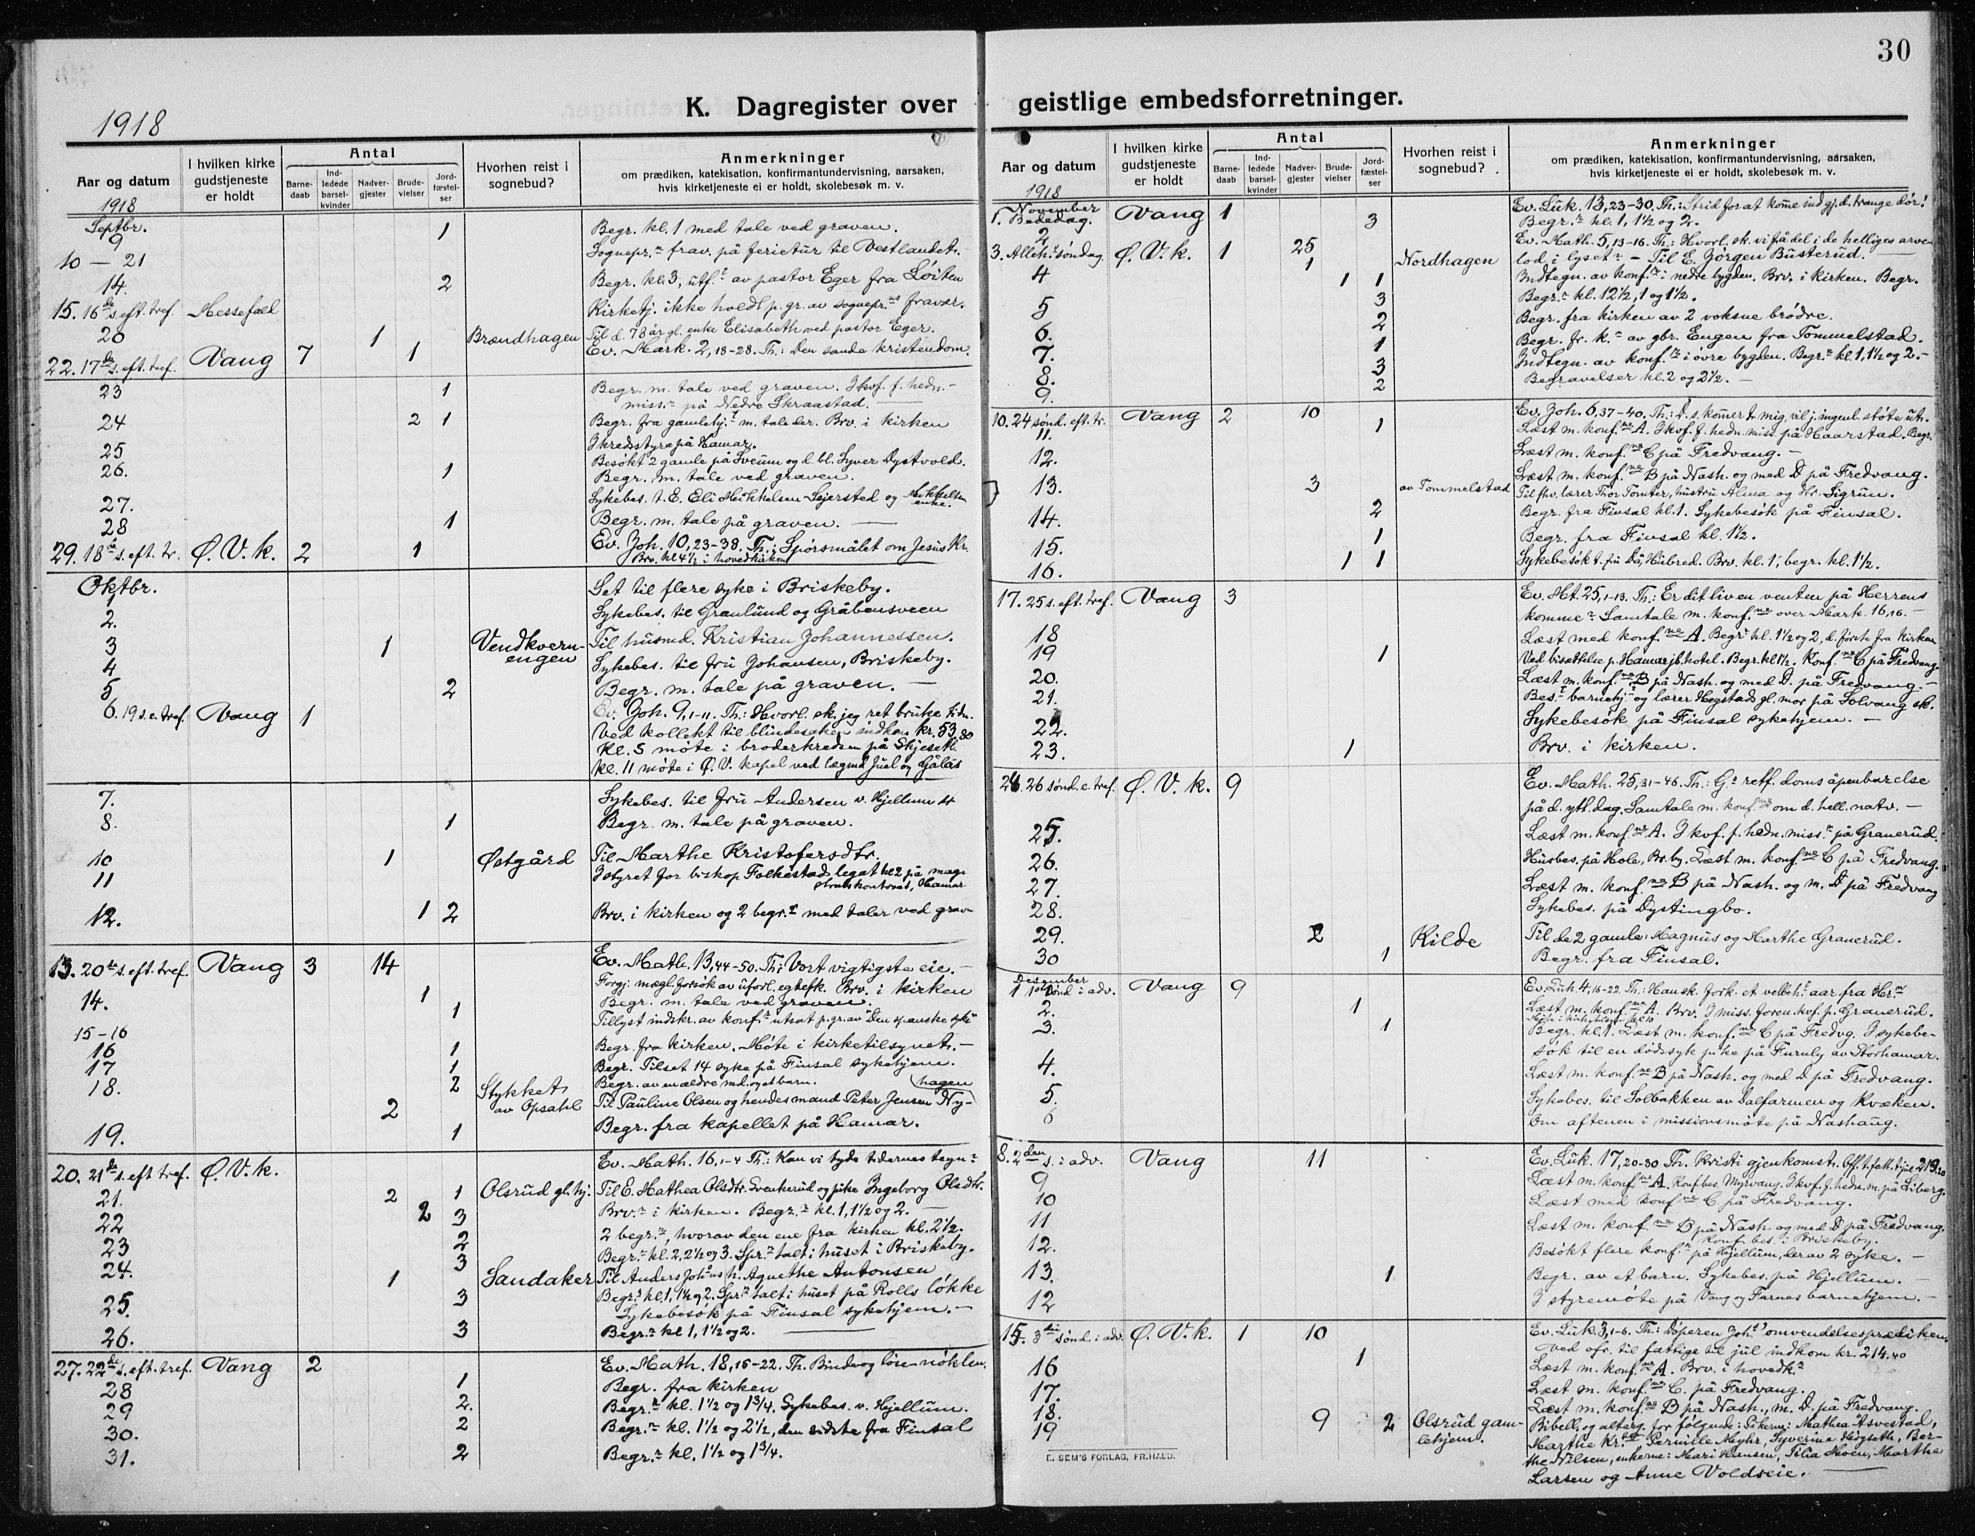 30
K. Dagregister over geistlige embedsforretninger.
1918
Aar og datum
I hvilken kirke gudstjeneste er holdt
Antal
Barnedaab
Indledede barselkvinder
Nadvergjester
Brudevielser
Jordfæstelser
Hvorhen reist i sognebud?
Anmerkninger
om prædiken, katekisation, konfirmantundervisning, aarsaken,
hvis kirketjeneste ei er holdt, skolebesøk m. v.
1918
Septbr.
9 1 Begr. kl. 1 med tale ved graven.
10 — 21 Sognepr. frav. på ferietur til Vestlandet.
14. 2 Begr. kl. 3, utf. av pastor Eger fra Løiten
15. 16de s. eft. tref. Messefald Kirketj. ikke holdt p. gr. av sognepr.ns fravær.
20 1 Brændhagen Til d. 78 år gl. enke Elisabeth ved pastor Eger.
22. 17de s. eft. tref. Vang 7 1 Ev. Mark. 2, 18-28. Th.: Den sande kristendom.
23 1 Begr. m. tale ved graven. I kvf. f. hedn.
miss. på Nedre Skraastad.
24 2 1 Begr. fra gamlehj. m. tale der. Brv. i kirken
25 I kredsstyre på Hamar.
Besøkt 2 gamle på Sveum og d. bl. Syver Dystvold.
26. 1 Begr. m. tale ved graven.
27. Sykebes. t. E. Eli Mikkelsen Sejersted og Mikkelsen enke.
28 1 Begr. m. tale på graven.
29. 18de s. eft. tr. Ø. V. k. 2 1 Ev. Joh. 10, 23-38. Th.: Spørsmålet om Jesus Kr.
Brv. kl. 4½ i hovedkirken
Oktbr.
1 Set til flere syke i Briskeby.
2. Sykebes. til Granlund og Gråbensveen
3 1 Vendkvernengen Til husmd. Kristian Johannessen.
4 Sykebes. til fru Johansen, Briskeby.
5 2 Begr. m. tale på graven.
6. 19 s. e. tref. Vang 1 Ev. Joh. 9, 1-11. Th.: Hvorl. sk. jeg ret bruke tidn.
Ved kollekt til blindesaken indkom kr. 53,80
Kl. 5 møte i broderkredsen på Skjeseth
kl. 11 møte i Ø. V. kapel ved lægmd. Juel og Gålås
7. Sykebes. til fru Andersen v. Hjellum st
8. 1 Begr. m. tale på graven.
10 1 Østgård Til Marthe Kristofersdtr.
11 I styret for biskop Folkestads legat kl. 2 på magistratskontoret, Hamar
12. 1 2 Brv. i kirken og 2 begr. med taler ved grav
13. 20de s. eft. tref. Vang 3 14 Ev. Math. 13, 44-50. Th.: Vort vigtigste eie.
Forgj. mægl. forsøk av uforl. egtefk. Brv. i kirken
14. 1 1 Begr. m. tale ved graven.
15-16 Tillyst indskr. av konf. utsat p. gr. av "Den spanske syke"
16 1 Begr. fra kirken. Møte i kirketilsynet.
17 1 Begr. Tilset 14 syke på Finsal sykehjem.
18. 2 Begr. av en ældre md. og et barn.
2 Stykket av Opsahl Til Pauline Olsen og hendes mand Peter Jensen Nyhagen
19. 1 Begr. fra kapellet på Hamar.
20. 21de s. eft. tref. Ø. V. k. Ev. Math. 16, 1-4 Th.: Kan vi tyde tidernes tegn
21. 2 1 Olsrud gl. hj. Til E. Mathea Olsdtr. Svenkerud og pike Ingeborg Olsdtr.
22 2 3 Brv. i kirken. Begr. kl. 1, 1½ og 2.
23 2 2 begr., hvorav den ene fra kirken kl. 2½.
24. 3 Begr. kl. 2, 2½ og 3. Spr. talt i huset i Briskeby.
1 Sandaker Til Anders Johns h. Agnethe Antonsen
25. 3 Begr. kl. 1, 1½ og 2. Spr. talt i huset på Rolls løkke
Sykebesøk på Finsal sykehjem.
26. 3 Begr. kl 1, 1½ og 2.
27. 22de s. eft. tref. Vang 2 Ev. Math. 18, 15-22. Th. Bind og løsenøklen.
28 1 Begr. fra kirken
29 2. Begr. kl. 1½ og 1¾. Sykebes. v. Hjellum.
30. 2 Begr. kl. 1½ og 2½, den sidste fra Finsal
31. 2 Begr. kl. 1½ og 1¾.
Aar og datum
I hvilken kirke gudstjeneste er holdt
Antal
Barnedaab
Indledede barselkvinder
Nadvergjester
Brudevielser
Jordfæstelser
Hvorhen reist i sognebud?
Anmerkninger
om prædiken, katekisation, konfirmantundervisning, aarsaken,
hvis kirketjeneste ei er holdt, skolebesøk m. v.
1918
November
1. Bededag. Vang 1 Ev. Luk. 13, 23-30. Th.: Strid for at komme ind gj. d. trange dør!
2 3 Begr. kl. 1, 1½ og 2.
3. Alleh. søndag. Ø. V. k. 1 25 Ev. Math. 5, 13-16. Th.: Hvorl. sk. vi få del i de helliges arvelod i lyset
1 Nordhagen Til E. Jörgen Busterud.
4 1 1 Indtegn. av konf. i nedre bygden. Brv. i kirken. Begr.
5 3 Begr. kl. 12½, 1 og 1½.
6. 2 Begr. fra kirken av 2 voksne brødre.
7. 1 Begr. fr. k. av gbr. Engen fra Tommelstad.
8. 3 Indtegn. av konf. i øvre bygden. Begr. kl. 1, 1½ og 2.
9. 2 Begravelser kl. 2 og 2½.
10. 24 sønd. eft. tr. Vang 2 10 Ev. Joh. 6, 37-40. Th.: D. s. kommer t. mig, vil j. ingenl. støte ut.
11. 1 Læst m. konf. A. I kvf. f. hedn. miss. på Haarstad. Begr.
12. Læst m. konf. C på Fredvang.
13. Læst m. konf. B på Nash. og med D på Fredvang.
3 av Tommelstad Til fhv. lærer Thor Tomter, hustru Alma og dtr. Sigrun.
14. 2 Begr. fra Finsal kl. 1. Sykebesøk på Finsal.
15. 1 Begr. fra Finsal kl. 1½.
16. 1 1 Sykebesøk t. fru Då, Hubred. Brv. kl. 1, begr. kl. 1½.
17. 25 s. eft. tref. Vang 3 Ev. Mt. 25, 1-13. Th.: Er dit liv en venten på Herrens
komme Samtale m. konf. over Mark. 16, 16.
18 Læst med konf. A. Begr. kl. 1½ og 2, d. første fra kirken
19 1 Ved bisættelse p. Hamar jb. hotel. Begr. kl. 1½. Konf. C på Fredvang
20. Læst m. konf. B på Nash. og med D. på Fredvang.
21. Bes. barnehj. og lærer Hogstad gl. mor på Solvang sk.
22. Sykebesøk på Finsal sykehjem.
23. 1 Brv. i kirken.
24. 26 sønd. e. tref. Ø. V. k. 9 Ev. Math. 25, 31-46. Th.: G. retf. doms åpenbarelse
på d. ytt. dag. Samtale m. konf. om d. hell. natv.
25. Læst m. konf. A. I kvf. f. hedn. miss. på Granerud.
26. Husbes. på Hole, Br. by. Læst m. konf. C på Fredvang.
27. Læst m. konf. B på Nash. og m. D på Fredvang
28. Sykebes. på Dystingbo.
29. 2 Kilde Til de 2 gamle: Magnus og Marthe Granerud.
30 1 Begr. fra Finsal.
Desember
1 1ste sønd i adv. Vang 9 Ev. Luk. 4, 16-22. Th.: Han sk. fork. et velbeh. aar fra Hr.
2. 1 Læst m. konf. A. Brv. I miss. foren. kvf. p. Granerud.
3. 1 Begr. kl. 1. Læst m. konf. C på Fredvg. I sykebesøk til en dødssyk pike på Furuly av Storhamar.
4. Læst m. konf. B på Nash. og med D på Fredvang.
5. Sykebes. til Solbakken av Dalfarmen og Kvæken.
6 Om aftenen i missionsmøte på Nashaug.
8. 2den s. i adv. Vang 11 Ev. Luk. 17, 20-30 Th. Kristi gjenkomst.
9 Læst m. konf. A. Konf. bes. Myrvang. I kvf. f. hedn. m. på Liberg.
10 Læst med konf. C. på Fredvang.
11 Læst m. konf. B på Nash. og med D på Fredvang.
Konf. bes. i Briskeby.
12. Besøkt flere konf. på Hjellum, derav 2 syke.
13. 1 Begr. av et barn. Sykebes. på Hjellum.
12 I styremøte på Vang og Farnes barnehjem.
15. 3die sønd. i adv. Ø. V. k. 1 10 Ev. Luk. 3, 1-6. Th.: Døperen Joh. omvendelsesprædiken.
Ved ofr. til fattige til jul indkom kr. 214.40
16 1 Læst m. konf. A. Brv. i hovedk.
17. Læst m. konf. C. på Fredvang.
18. Læst m. konf. B på Nash., m. D. på Fredvang.
19 9 2 Olsrud gamlehjem. Bibell. og alterg. for følgende: Pikerne: Mathea Åsvestad,
Marthe Kr. Pernille Myhr, Syverine Høgseth, Berthe Nilsen, enkerne: Mari Hansen, Tilia Moen, Marthe
Larsen og Anne Voldseie.
E. SEM'S FORLAG, FR.HALD.